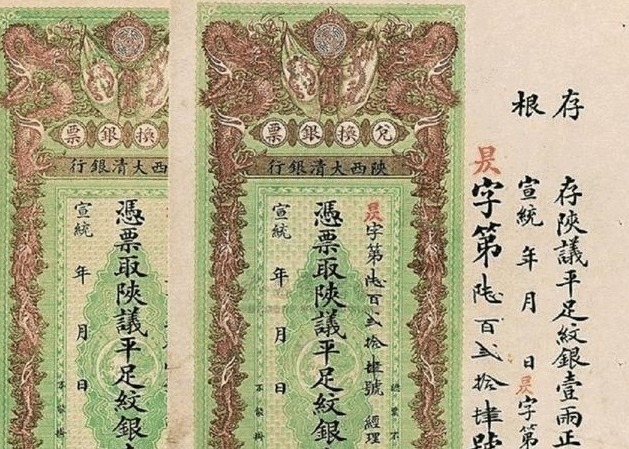 存根
存陝議平足紋銀壹兩正
宣統 年 月 日 昃字第
昃字第陸百弍拾肆號
兌換銀票
陝西大清銀行
昃字第陸百弍拾肆號 經理
憑票取陝議平足紋銀
宣統 年 月 日
換銀票
西大清銀行
憑票取陝議平足紋銀
宣統 年 月 日